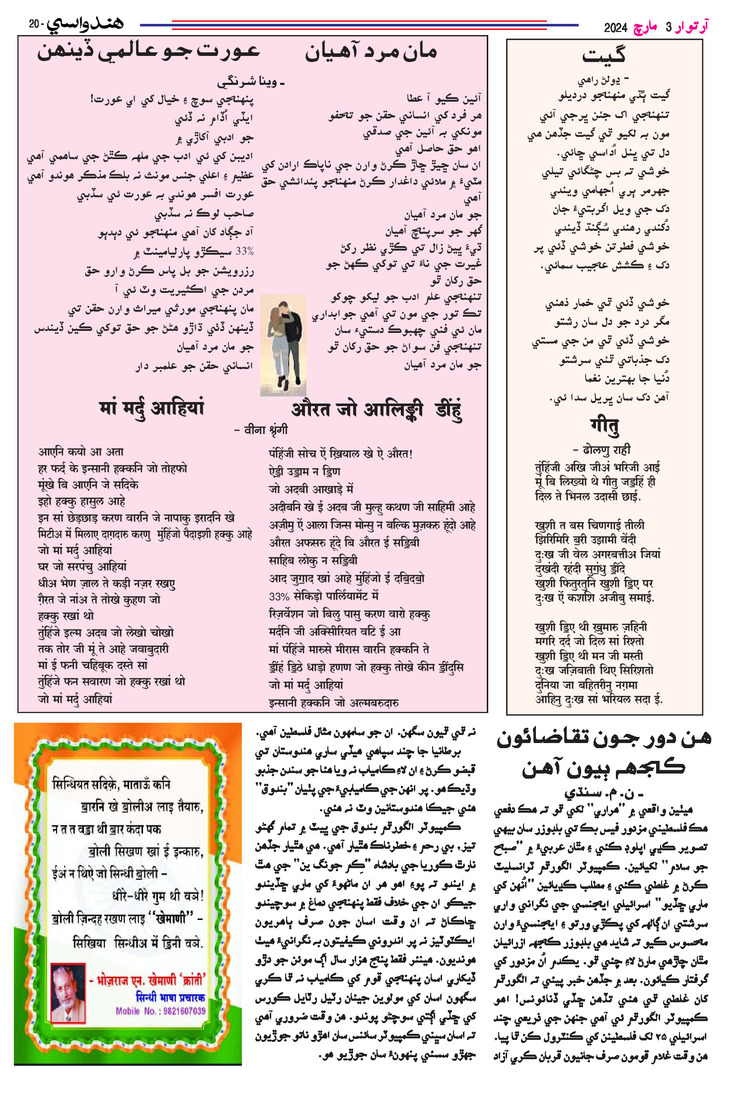 آرتوار 3 مارچ 2024
هندواسي
20 -
مان مرد آهيان
عورت جو عالمي ڏينهن
- وينا شرنگي
آئين ڪيو آ عطا
هر فرد کي انساني حقن جو تحفو
مونکي به آئين جي صدقي
اهو حق حاصل آهي
ان سان ڇيڙ ڇاڙ ڪرڻ وارن جي ناپاڪ ارادن کي
مٽيءَ ۾ ملائي داغدار ڪرڻ منهنجو پندائشي حق
آهي
جو مان مرد آهيان
گهر جو سرپنچ آهيان
ڌيءَ ڀيڻ زال تي ڪڙي نظر رکڻ
غيرت جي ناءَ تي توکي ڪهڻ جو
حق رکان ٿو
تنهنجي علم ادب جو ليکو چوکو
تڪ تور جي مون تي آهي جوابداري
مان ئي فني چهبوڪ دستيءَ سان
تنهنجي فن سواڻ جو حق رکان ٿو
جو مان مرد آهيان
پنهنجي سوچ ۽ خيال کي اي عورت!
ايڏي اُڏام نه ڏئي
جو ادبي آکاڙي ۾
اديبن کي ئي ادب جي ملهه ڪٿڻ جي ساهمي آهي
عظيم ۽ اعليٰ جنس مونث نه بلڪ مذڪر هوندو آهي
عورت افسر هوندي به عورت ئي سڏبي
صاحب لوڪ نه سڏبي
آد جڳاد کان آهي منهنجو ئي دٻدٻو
33% سيڪڙو پارليامينٽ ۾
رزرويشن جو بل پاس ڪرڻ وارو حق
مردن جي اڪثيريت وٽ ئي آ
مان پنهنجي مورثي ميراث وارن حقن تي
ڏينهن ڏٺي ڌاڙو هڻڻ جو حق توکي ڪين ڏيندس
جو مان مرد آهيان
انساني حقن جو علمبر دار
मां मर्दु आहियां
औरत जो आलिङ्की डी॒हुं
- वीना श्रृंगी
आएनि कयो आ अता
हर फर्द के इन्सानी हक्कनि जो तोहफो
मूंखे बि आएनि जे सदिके
इहो हक्कु हासुल आहे
इन सां छेड़छाड़ करण वारनि जे नापाकु इरादनि खे
मिटीअ में मिलाए दाग़दारु करणु मुंहिंजो पैदाइशी हक्कु आहे
जो मां मर्दु आहियां
घर जो सरपंचु आहियां
धीअ भेण ज़ाल ते कड़ी नज़र रखणु
ग़ैरत जे नांअ ते तोखे कुहण जो
हक्कु रखां थो
तुंहिंजे इल्म अदब जो लेखो चोखो
तक तोर जी मूं ते आहे जवाबुदारी
मां ई फनी चहिबूक दस्ते सां
तुंहिंजे फन सवारण जो हक्कु रखां थो
जो मां मर्दु आहियां
पंहिंजी सोच ऐं ख़ियाल खे ऐ औरत!
ऐडी॒ उडा॒म न डि॒ण
जो अदबी आखाड़े में
अदीबनि खे ई अदब जी मुल्हु कथण जी साहिमी आहे
अज़ीमु ऐं आला जिन्स मोन्सु न बल्कि मुज़करु हूंदो आहे
औरत अफसरु हूंदे बि औरत ई सडि॒बी
साहिब लोकु न सडि॒बी
आद जुगा॒द खां आहे मुंहिंजो ई दबि॒दबो॒
33% सेकिड़ो पार्लियामेंट में
रिज़र्वेशन जो बिलु पासु करण वारो हक्कु
मर्दनि जी अक्सिीरियत वटि ई आ
मां पंहिंजे मारूसे मीरास वारनि हक्कनि ते
डीं॒हं डि॒ठे धाड़ो हणण जो हक्कु तोखे कीन डीं॒दुसि
जो मां मर्दु आहियां
इन्सानी हक्कनि जो अल्मबरुदारु
گيت
- ڍولڻ راهي
گيت ٻُڌي منهنجو دردِيلو
تنهنجي اک جئن ڀرجي آئي
مون به لکيو ٿي گيت جڏهن هي
دل تي ڀنل اُداسي ڇائي.
خوشي ته بس چڻگائي تيلي
جهرمر ٻري اُجهامي ويندي
دک جي ويل اگربتيءَ جان
دُکندي رهندي سُڳنڌ ڏيندي
خوشي فطرتن خوشي ڏئي پر
دک ۽ ڪشش عجيب سمائي.
خوشي ڏئي ٿي خمار ذهني
مگر درد جو دل سان رشتو
خوشي ڏئي ٿي من جي مستي
دک جذباتي ٿئي سرشتو
دُنيا جا بهترين نغما
آهن دک سان ڀريل سدا ئي.
गीतु
- ढोलणु राही
तुंहिंजी अखि जीअं भरिजी आई
मूं बि लिख्यो थे गीतु जड॒हिं ही
दिल ते भिनल उदासी छाई.
खुशी त बस चिणगाई तीली
झिरिमिरि बरी उझामी वेंदी
दुःख जी वेल अगरबतीअ जियां
दुखंदी रहंदी सुगंधु डीं॒दे
खुशी फितुरतुनि खुशी डि॒ए पर
दुःख ऐं कशशि अजीबु समाई.
खुशी डि॒ए थी खुमारु ज़हिनी
मगरि दर्द जो दिल सां रिश्तो
खुशी डि॒ए थी मन जी मस्ती
दुःख जज़िबाती थिए सिरिशतो
दुनिया जा बहितरीनु नग़मा
आहिनु दुःख सां भरियल सदा ई.
هن دور جون تقاضائون
ڪجهه ٻيون آهن
- ن. م. سنڌي
مٿين واقعي ۾ "هراري" لکي ٿو ته هڪ دفعي
هڪ فلسطيني مزدور فيس بڪ تي بلڊوزر سان بيهي
تصوير ڪڍي اپلوڊ ڪئي ۽ مٿان عربيءَ ۾ "صبح
جو سلام" لکيائين. ڪمپيوٽر الگورٿم ٽرانسليٽ
ڪرڻ ۾ غلطي ڪئي ۽ مطلب ڪڍيائين "اُنهن کي
ماري ڇڏيو" اسرائيلي ايجنسي جي نگراني واري
سرشتي ان ڳالهه کي پڪڙي ورتو ۽ ايجنسيءَ وارن
محسوس ڪيو ته شايد هي بلڊوزر ڪجهه ازرائيلن
مٿان چاڙهي مارڻ لاءِ چئي ٿو. يڪدم اُن مزدور کي
گرفتار ڪيائون. بعد ۾ جڏهن خبر پيئي ته الگورٿم
کان غلطي ٿي هئي تڏهن ڇڏي ڏنائونس! اهو
ڪمپيوٽر الگورٿم ئي آهي جنهن جي ذريعي چند
اسرائيلي ٢٥ لک فلسطينن کي ڪنٽرول ڪن ٿا پيا.
هن وقت غلام قومون صرف جانيون قربان ڪري آزاد
نه ٿي ٿيون سگهن. ان جو سامهون مثال فلسطين آهي.
برطانيا جا چند سپاهي هيڏي ساري هندوستان تي
قبضو ڪرڻ ۽ ان لاءِ ڪامياب نه ويا هئا جو سندن جذبو
وڌيڪ هو. پر انهن جي ڪاميابيءَ جي پٺيان "بندوق"
هئي جيڪا هندوستانين وٽ نه هئي.
ڪمپيوٽر الگورٿم بندوق جي ڀيٽ ۾ تمام گهڻو
تيز، بي رحم ۽ خطرناڪ هٿيار آهي. هي هٿيار جڏهن
نارٿ ڪوريا جي بادشاه "ڪِم جونگ ين" جي هٿ
۾ ايندو ته پوءِ اهو هر ان ماڻهوءَ کي ماري ڇڏيندو
جيڪو ان جي خلاف فقط پنهنجي دماغ ۾ سوچيندو
ڇاڪاڻ ته ان وقت اسان جون صرف ٻاهريون
ايڪٽوٽيز نه پر اندروني ڪيفيتون به نگرانيءَ هيٺ
هونديون. هينئر فقط پنج هزار سال اڳ موئن جو دڙو
ڏيکاري اسان پنهنجي قوم کي ڪامياب نه ٿا ڪري
سگهون اسان کي مولوين جيئان رٽيل رٽايل ڪورس
کي ڇڏي اڳتي سوچڻو پوندو. هن وقت ضروري آهي
ته اسان سڀني ڪمپيوٽر سائنس سان اهڙو ناتو جوڙيون
جهڙو سسئي پنهونءَ سان جوڙيو هو.
सिन्धियत सदिके, माताऊँ कनि
बा॒रनि खे बो॒लीअ लाइ तैयारु,
न त त वडा॒ थी बा॒र कंदा पक
बो॒ली सिखण खां ई इन्कारु,
ईअं न थिऐ जो सिन्धी बो॒ली -
धीरे-धीरे गुम थी वञे!
बो॒ली ज़िन्दह रखण लाइ "खेमाणी" -
सिखिया सिन्धीअ में डि॒नी वञे.
- भोज़राज एन. खेमाणी 'क्रांती'
सिन्धी भाषा प्रचारक
Mobile No. : 9821607039